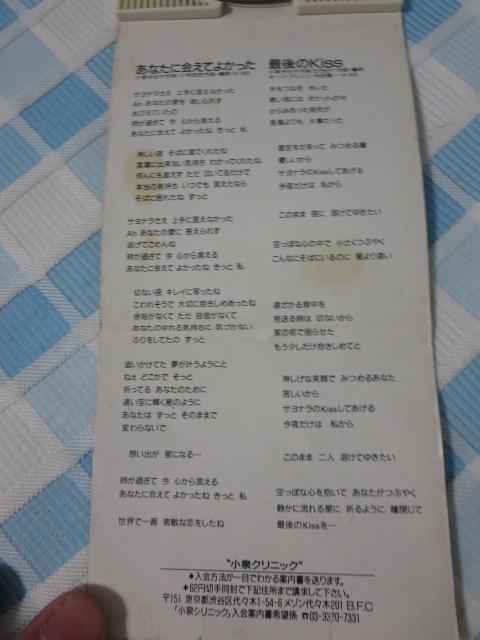 あなたに会えてよかった
サヨナラさえ 上手に言えなかった
Ah あなたの愛を 信じられず
おびえていたの
時が過ぎて 今 心から言える
あなたに会えて よかったね きっと 私
淋しい夜 そばに居てくれたね
言葉に出来ない気持ち わかってくれたね
何んにも言えず ただ 泣いてるだけで
本当の気持ち いつでも 言えたなら
そばに居れたね ずっと
サヨナラさえ 上手に言えなかった
Ah あなたの愛に 答えられず
逃げてごめんね
時が過ぎて 今 心から言える
あなたに会えて よかったね きっと 私
切ない夜 キレイに写ったね
こわれそうで 大切に抱きしめあったね
余裕がなくて ただ 自信がなくて
あなたのゆれる気持ちに 気づかない
ふりをしてたの ずっと
追いかけてた 夢が叶うようにと
ねぇ どこかで そっと
祈ってる あなたのために
遠い空に輝く星のように
あなたは ずっと そのままで
変わらないで
想い出が 星になる…
時が過ぎて 今 心から言える
あなたに会えて よかったね きっと 私
世界で一番 素敵な恋をしたね
最後のKiss
手をつなぎ 歩いた
寒い夜には ポケットの中
からみあった指先が
言葉よりも 大事だった
星空をだまって みつめる瞳
優しいから
サヨナラのKissしてあげる
今夜だけは 私から
このまま 夜に 溶けてゆきたい
空っぽな心の中で 小さくつぶやく
こんなにそばにいるのに 星より遠い
遠ざかる背中を
見送る時は 切ないから
家の前で困らせた
もう少しだけ抱きしめてと
淋しげな笑顔で みつめるあなた
苦しいから
サヨナラのKissしてあげる
今夜だけは 私から
このまま 二人 溶けてゆきたい
空っぽな心を抱いて あなたがつぶやく
静かに流れる星に 祈るように 瞳閉じて
最後のKissを…
"小泉クリニック"
◆入会方法が一目でわかる案内書を送ります。
◆62円切手同封で下記住所まで請求して下さい。
〒151 東京都渋谷区代々木1-54-6 メゾン代々木201 B.F.C
「小泉クリニック」入会案内書希望係 ☎03-3370-7331